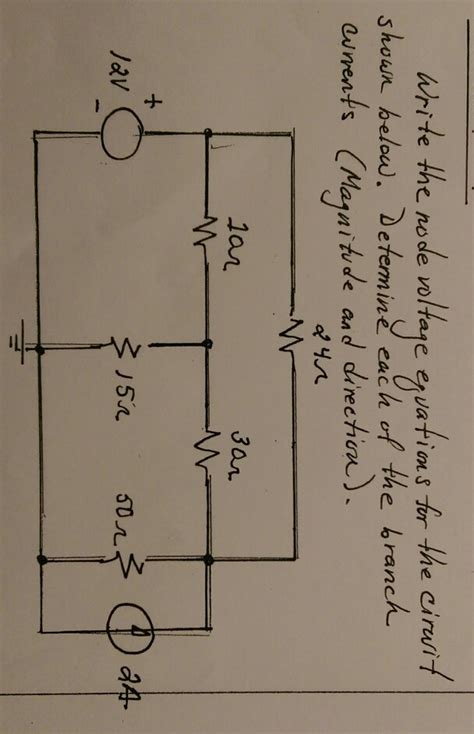 Write the node voltage equations for the circuit
shown below. Determine each of the branch
currents (Magnitude and direction).
24Ω
10Ω
30Ω
+
12V
-
15Ω
50Ω
2A